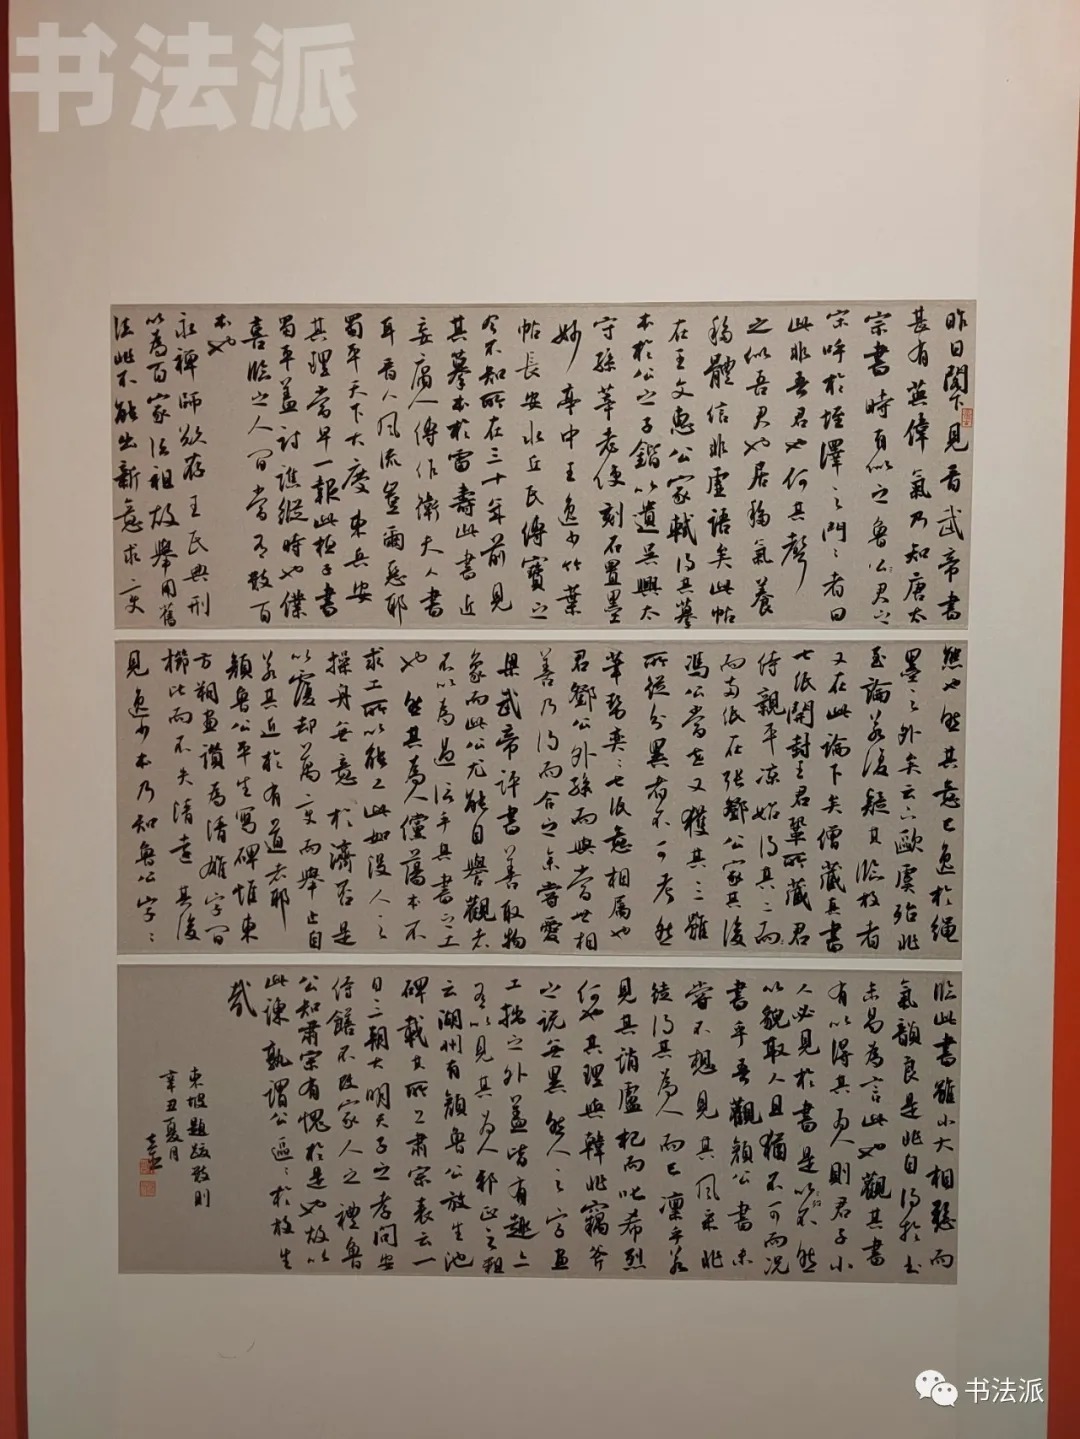 书法派
昨日閣下見晉武帝書
甚有英偉氣乃知唐太
宗書時有似之魯公君之
宋呼於垤澤之門門者曰
此非吾君也何其聲
之似吾君也居移氣養
移體信非虛語矣此帖
在王文惠公家軾得其摹
本於公之子鍇以遺吳興太
守孫莘老使刻石置墨
妙亭中王逸少竹葉
帖長安水丘氏傳寶之
今不知所在三十年前見
其摹本於雷壽此書近
妄庸人傳作衛夫人書
耳晉人風流豈爾惡耶
蜀平天下大慶東兵安
其理當早一報此桓子書
蜀平蓋討譙縱時也僕
喜臨之人間當有數百
本也
永禪師欲存王氏典刑
以為百家法祖故舉用舊
法非不能出新意求變
態也然其意已逸於繩
墨之外矣云下歐虞殆非
至論若復疑其臨放者
又在此論下矣僧藏真書
七紙開封王君鞏所藏君
侍親平涼始得其二而
而兩紙在張鄧公家其後
馮公當世又獲其三雖
所從分異者不可考然
筆勢奕奕七紙意相屬也
君鄧公外孫而與當世相
善乃得而合之余嘗愛
梁武帝評書善取物
象而此公尤能自譽觀者
不以為過信乎其書之工
也然其為人儻蕩本不
求工所以能工此如沒人之
操舟無意於濟否是
以覆卻萬變而舉止自
若其近於有道者耶
顏魯公平生寫碑惟東
方朔畫讚為清雄字間
櫛比而不失清遠其後
見逸少本乃知魯公字字
臨此書雖小大相懸而
氣韻良是非自得於書
未易為言此也觀其書
有以得其為人則君子小
人必見於書是以不然
以貌取人且猶不可而況
書乎吾觀顏公書未
嘗不想見其風采非
徒得其為人而已凜乎若
見其誚盧杞而叱希烈
何也其理與韓非竊斧
之說無異然人之字畫
工拙之外蓋皆有趣亦
有以見其為人邪正之粗
云湖州有顏魯公放生池
碑載其所上肅宗表云一
日三朝大明天子之孝問安
侍膳不改家人之禮魯
公知肅宗有愧於是也故以
此諫孰謂公區區於放生
哉
東坡題跋數則
辛丑夏月
书法派